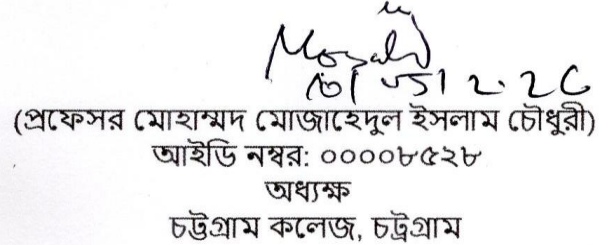 (প্রফেসর মোহাম্মদ মোজাহেদুল ইসলাম চৌধুরী)
আইডি নম্বর: ০০০০৮৫২৮
অধ্যক্ষ
চট্টগ্রাম কলেজ, চট্টগ্রাম